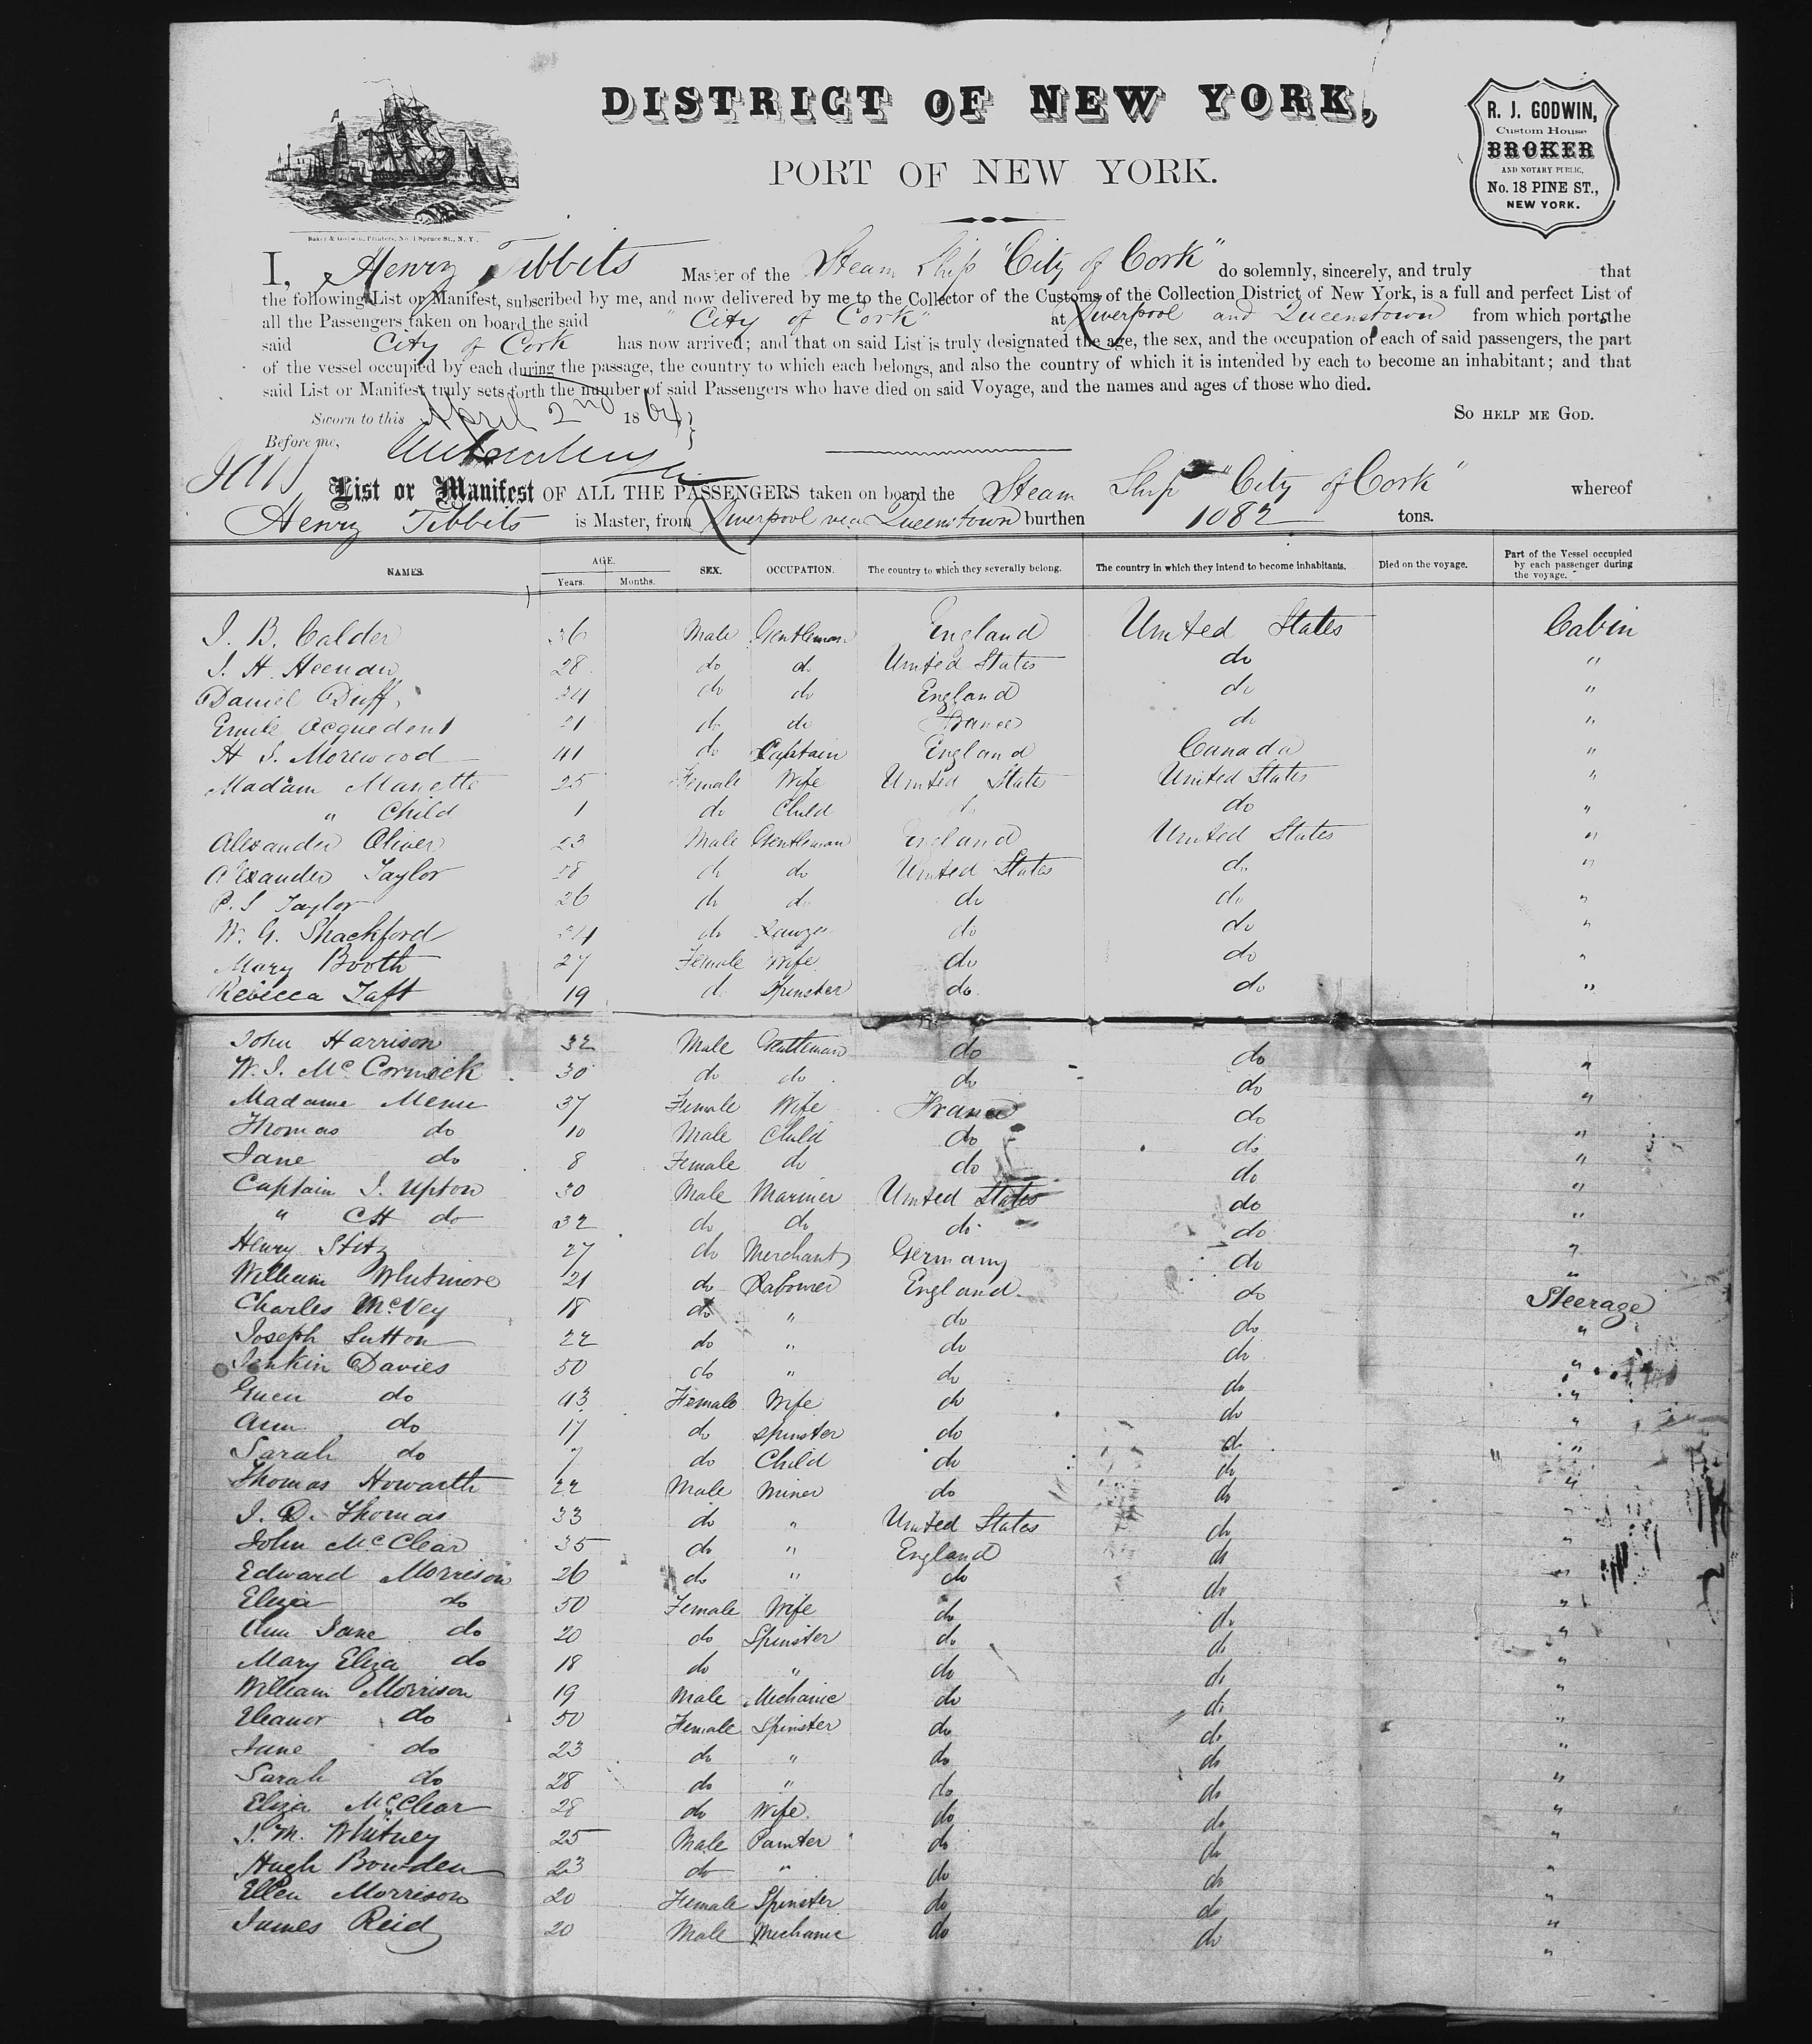 DISTRICT OF NEW YORK,
PORT OF NEW YORK.
R. J. GODWIN,
Custom House
BROKER
AND NOTARY PUBLIC,
No. 18 PINE ST.,
NEW YORK.
Baker & Godwin, Printers, No. 1 Spruce St., N. Y.
I, Henry Tibbits Master of the Steam Ship "City of Cork" do solemnly, sincerely, and truly that
the following List or Manifest, subscribed by me, and now delivered by me to the Collector of the Customs of the Collection District of New York, is a full and perfect List of
all the Passengers taken on board the said "City of Cork" at Liverpool and Queenstown from which ports the
said City of Cork has now arrived; and that on said List is truly designated the age, the sex, and the occupation of each of said passengers, the part
of the vessel occupied by each during the passage, the country to which each belongs, and also the country of which it is intended by each to become an inhabitant; and that
said List or Manifest truly sets forth the number of said Passengers who have died on said Voyage, and the names and ages of those who died.
Sworn to this April 2nd 1864 SO HELP ME GOD.
Before me,
List or Manifest OF ALL THE PASSENGERS taken on board the Steam Ship "City of Cork" whereof
Henry Tibbits is Master, from Liverpool via Queenstown burthen 1082 tons.
NAMES. AGE. Years. Months. SEX. OCCUPATION. The country to which they severally belong. The country in which they intend to become inhabitants. Died on the voyage. Part of the Vessel occupied by each passenger during the voyage.
J. B. Calder 36 Male Gentleman England United States Cabin
J. H. Heenan 28 do do United States do "
Daniel Duff 24 do do England do "
Emile Acquedent 21 do do France do "
H S. Morewood 41 do Captain England Canada "
Madam Manette 25 Female Wife United States United States "
" Child 1 do Child do "
Alexander Oliver 23 Male Gentleman England United States "
Alexander Taylor 28 do do United States do "
P. S Taylor 26 do do do do "
W. G. Shackford 24 do do do "
Mary Booth 27 Female Wife do do "
Rebecca Taft 19 do Spinster do do "
John Harrison 32 Male Gentleman do do "
W. J. McCormick 30 do do do do "
Madame Menu 37 Female Wife France do "
Thomas do 10 Male Child do do "
Jane do 8 Female do do do "
Captain J. Upton 30 Male Mariner United States do "
" CH do 32 do do do do "
Henry Stitz 27 do Merchant Germany do "
William Whitmore 21 do Labourer England do Steerage
Charles McVey 18 do " do do "
Joseph Sutton 22 do " do do "
Jenkin Davies 50 do " do do "
Guen do 43 Female Wife do do "
Ann do 17 do Spinster do do "
Sarah do 7 do Child do do "
Thomas Howarth 22 Male Miner do do "
J. D. Thomas 33 do " United States do "
John McClear 35 do " England do "
Edward Morrison 26 do " do do "
Eliza do 50 Female Wife do do "
Ann Jane do 20 do Spinster do do "
Mary Eliza do 18 do " do do "
William Morrison 19 Male Mechanic do do "
Eleanor do 50 Female Spinster do do "
Jane do 23 do " do do "
Sarah do 28 do " do do "
Eliza McClear 28 do Wife do do "
J. M. Whitney 25 Male Painter do do "
Hugh Bowden 23 do " do do "
Ellen Morrison 20 Female Spinster do do "
James Reid 20 Male Mechanic do do "